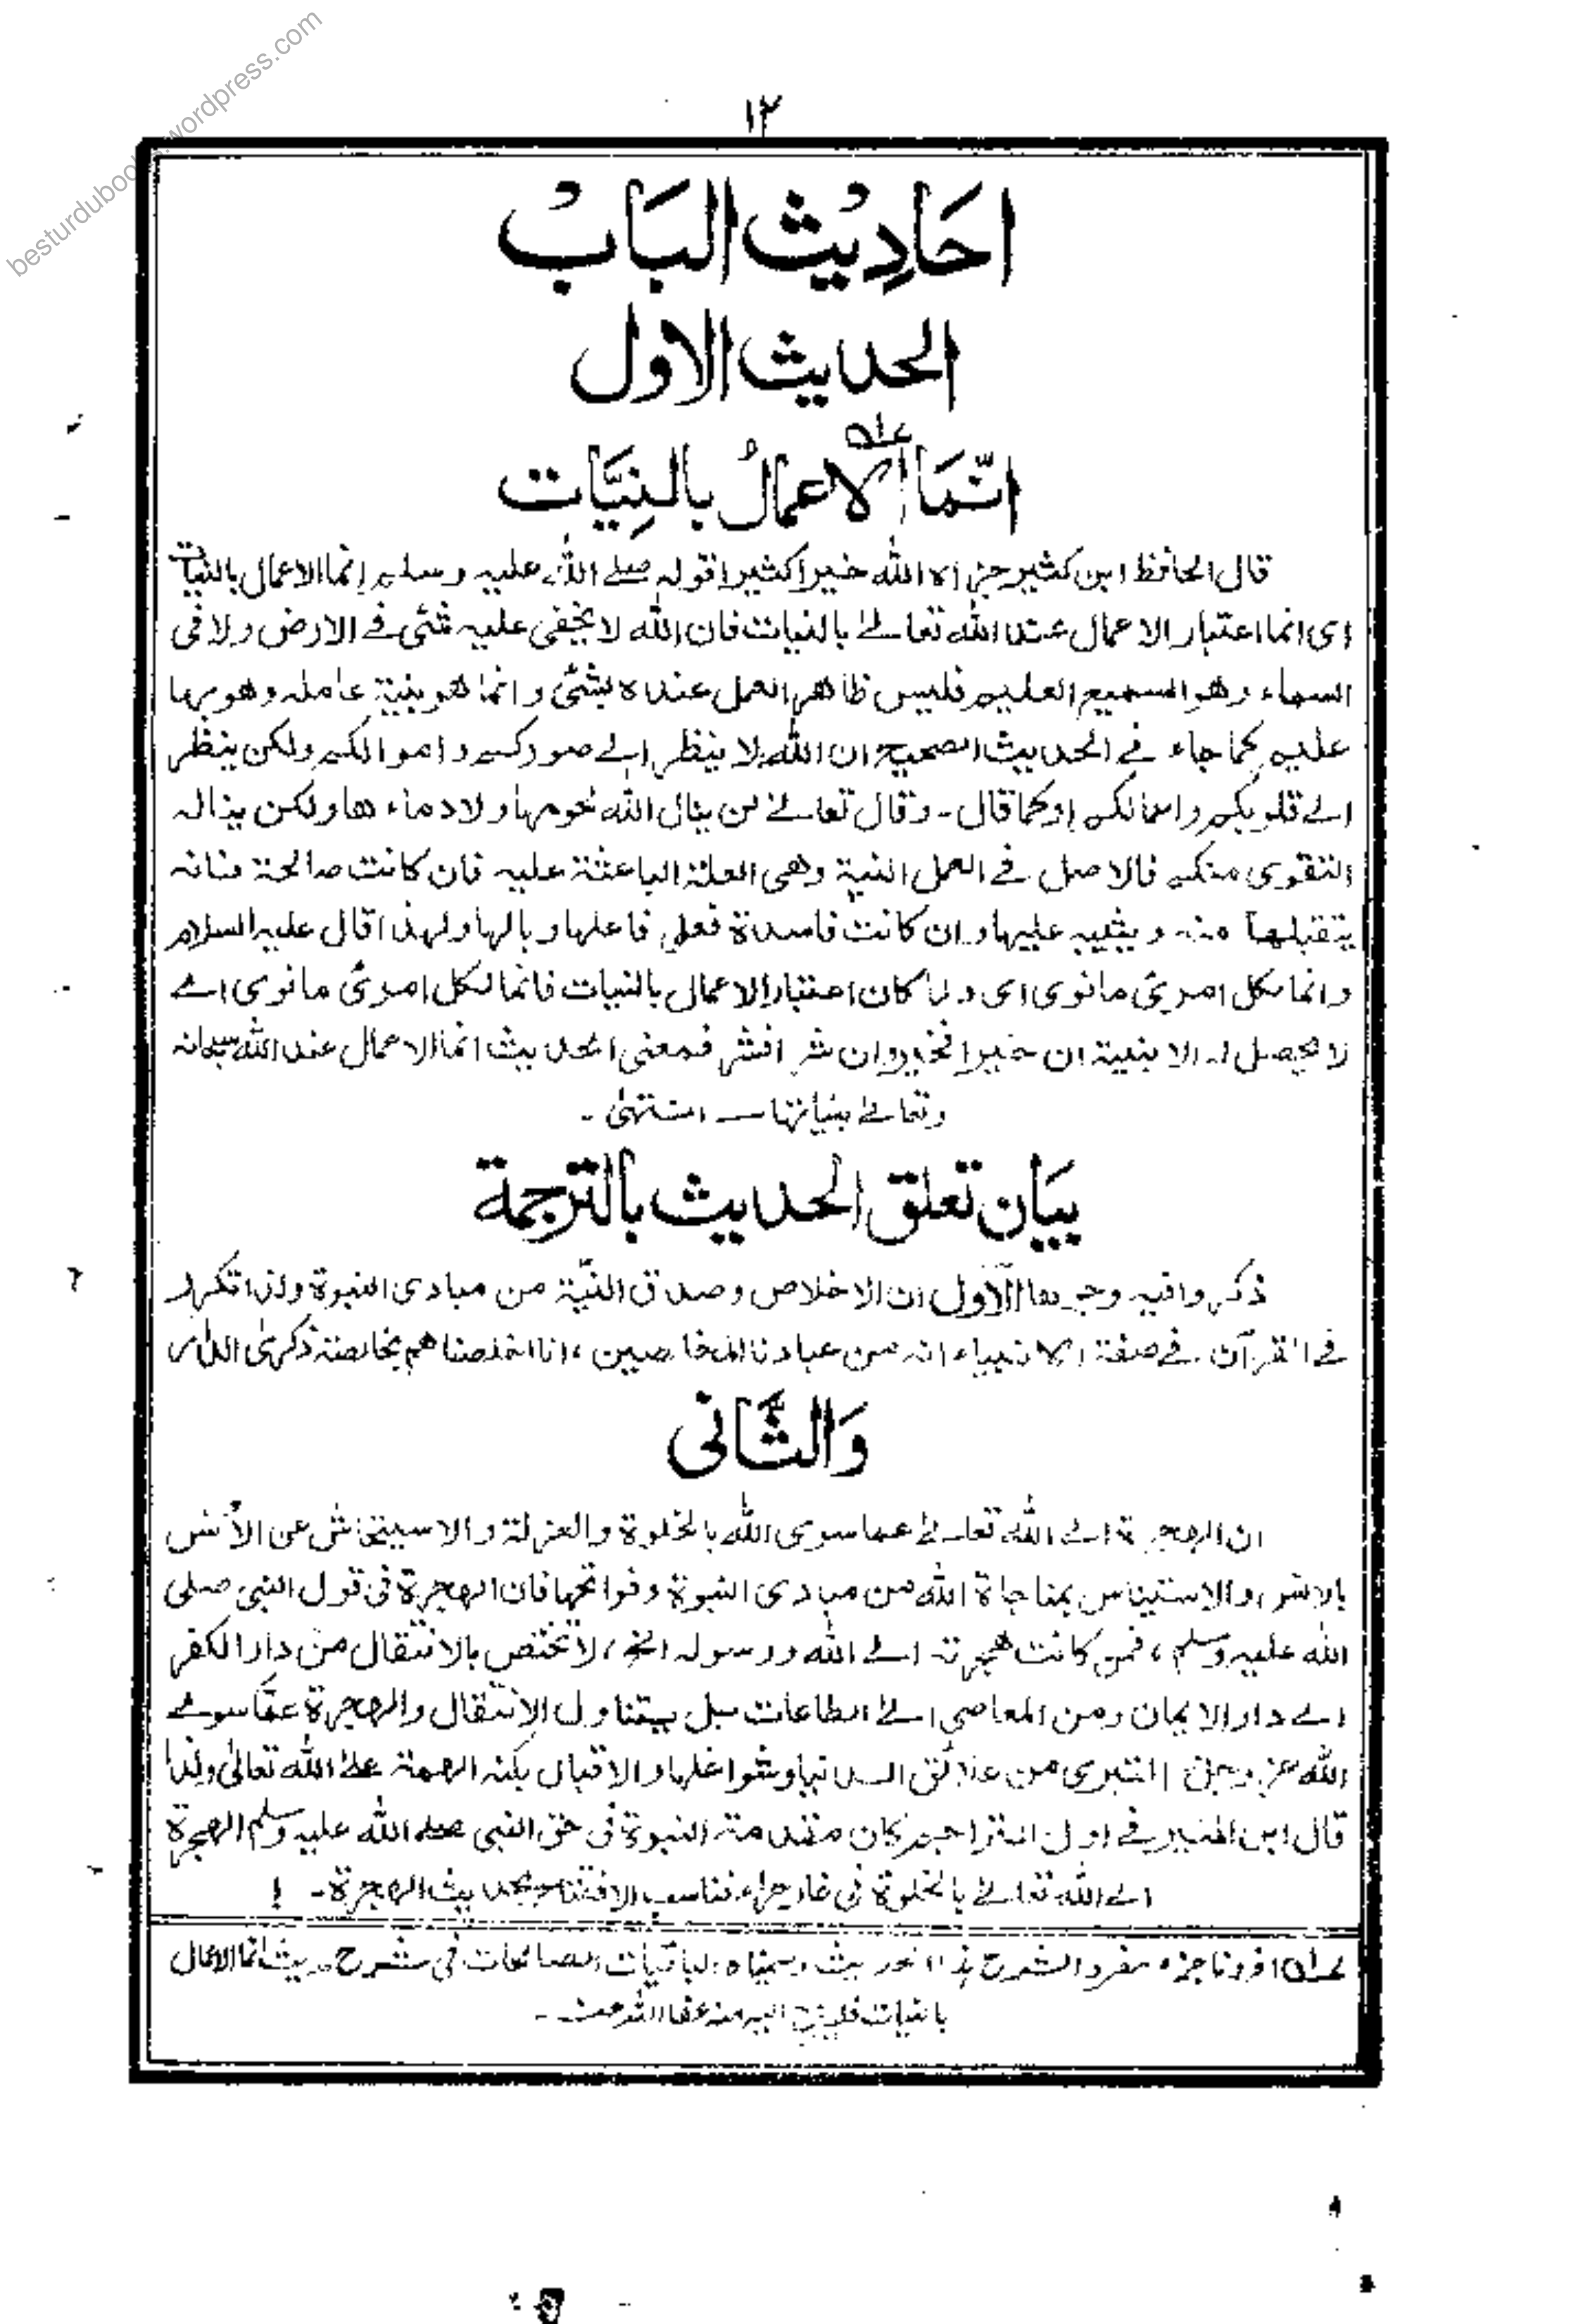 besturdubooks.wordpress.com
١٢
احَادِيْث البَابْ
الحديث الاول
انّمَا الاعمالُ بالنِيَّات
قال الحافظ ابن كثير جزاه الله خيرا كثيرا قوله صلے الله عليه وسلم انما الاعمال بالنيات
اى انما اعتبار الاعمال عند الله تعالےٰ بالنيات فان الله لا يخفى عليه شئ فے الارض ولا فى
السماء وهو السميع العليم فليس ظاهر العمل عنده بشئ وانما هو بنية عامله وهو بها
عليم كما جاء فے الحديث الصحيح ان الله لا ينظر الے صوركم واموالكم ولكن ينظر
الے قلوبكم واعمالكم اوكما قال ـ وقال تعالےٰ لن ينال الله لحومها ولا دماءها ولكن يناله
التقوى منكم فالاصل فے العمل النية وهى العلة الباعثة عليه فان كانت صالحة فانه
يتقبلها منه ويثيبه عليها وان كانت فاسدة فعلى فاعلها وبالها ولهذا قال عليه السلام
وانما لكل امرئ مانوى اى ولما كان اعتبار الاعمال بالنيات فانما لكل امرئ مانوى اے
لا يحصل له الا بنية ان خيرا فخير وان شرا فشر فمعنى الحديث انما الاعمال عند الله سبحانه
وتعالےٰ بنياتها ــ انتهىٰ ـ
بيَان تعلق الحديث بالترجمة
ذكروا فيه وجوها الاول ان الاخلاص وصدق النيّة من مبادى النبوة ولذا تكرر
فے القرآن فے صفة الانبياء انه من عبادنا المخلصين، انا اخلصناهم بخالصة ذكرى الدار
وَالثَّانى
ان الهجرة الے الله تعالےٰ عما سوى الله بالخلوة والعزلة والاستيحاش عن الأنس
بالانس، والاستيناس بمناجاة الله من مبادى النبوة وفواتحها فان الهجرة فى قول النبى صلى
الله عليه وسلم، فمن كانت هجرته الے الله ورسوله الخ، لا تختص بالانتقال من دار الكفر
الے دار الايمان ومن المعاصى الےٰ الطاعات بل يتناول الانتقال والهجرة عمّا سوے
الله عز وجل التبرى من علائق الدنيا وشواغلها والاقبال بكنه الهمة علےٰ الله تعالىٰ ولذا
قال ابن المنير فے اول التراجم كان مقدمة النبوة فى حق النبى صلے الله عليه وسلم الهجرة
الے الله تعالےٰ بالخلوة فى غار حراء فناسب الافتتاح بحديث الهجرة ـ !
افردنا جزء مفرد الشرح هذا الحديث وسميناه الباقيات الصالحات فى شرح حديث انما الاعمال
بالنيات فليرجع اليه منه عفا الله عنه ـ